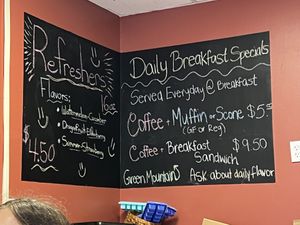 Refreshers
16oz
Flavors:
• Watermelon-Cucumber
• Dragonfruit-Blueberry
• Summer-Strawberry
$4.50
Daily Breakfast Specials
Served Everyday @ Breakfast
Coffee + Muffin or Scone $5.25
(GF or Reg)
Coffee + Breakfast $9.50
Sandwich
Green Mountain Ask about daily flavor